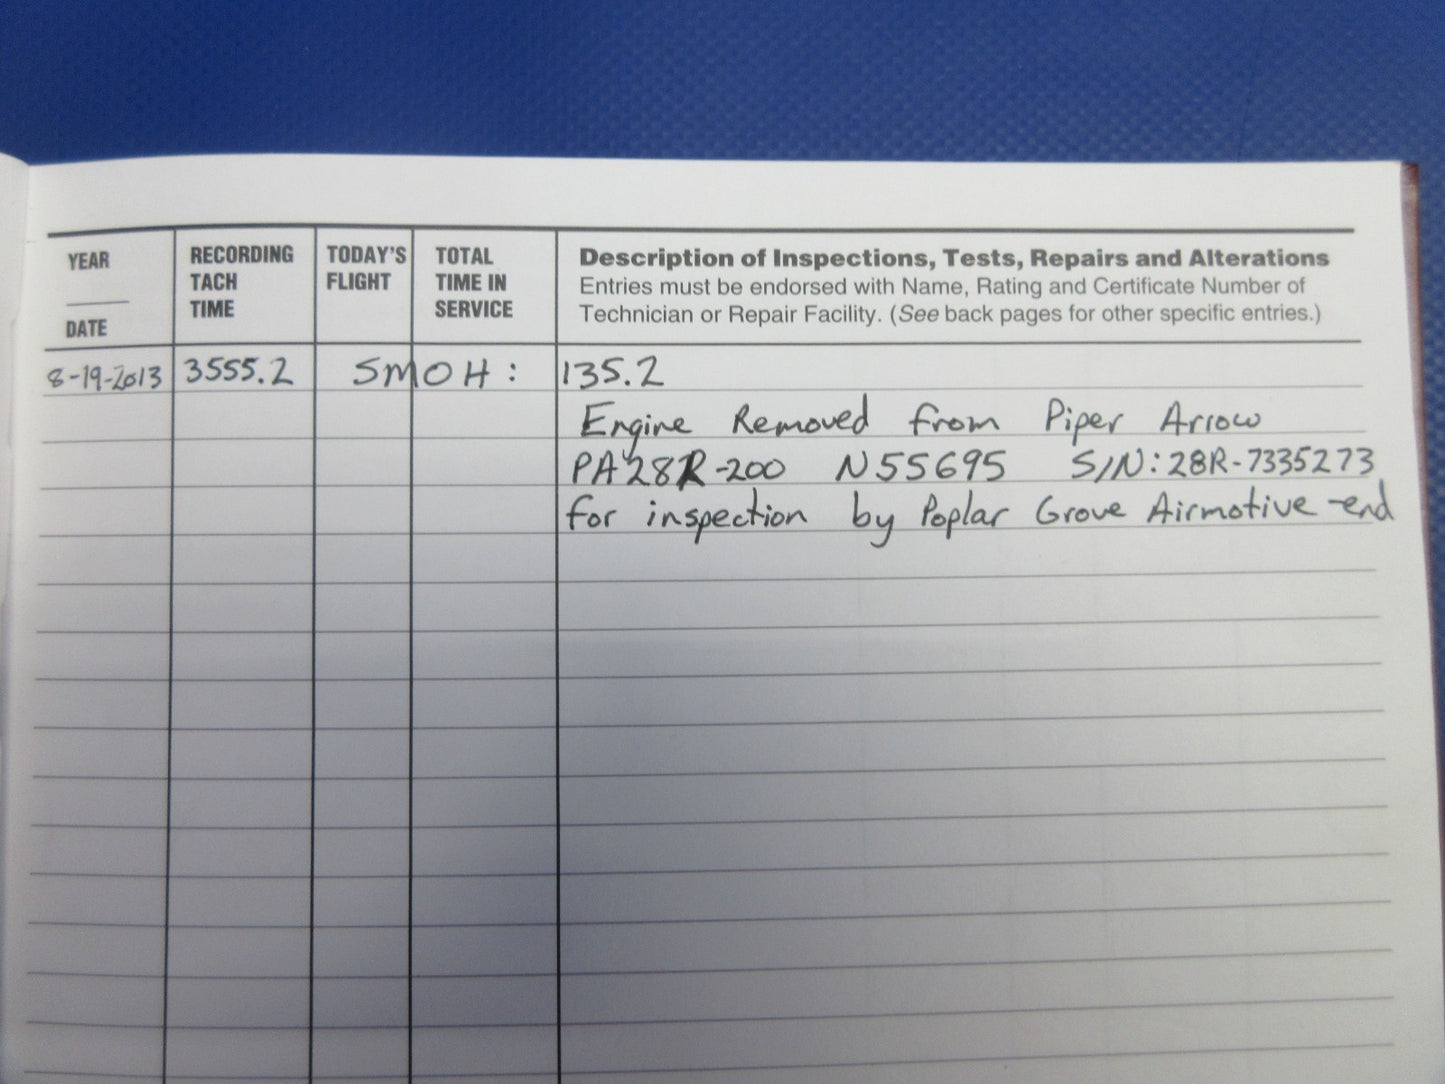 YEAR
DATE
RECORDING
TACH
TIME
TODAY'S
FLIGHT
TOTAL
TIME IN
SERVICE
Description of Inspections, Tests, Repairs and Alterations
Entries must be endorsed with Name, Rating and Certificate Number of
Technician or Repair Facility. (See back pages for other specific entries.)
8-19-2013 3555.2 SMOH: 135.2
Engine Removed from Piper Arrow
PA28R-200 N55695 S/N:28R-7335273
for inspection by Poplar Grove Airmotive -end